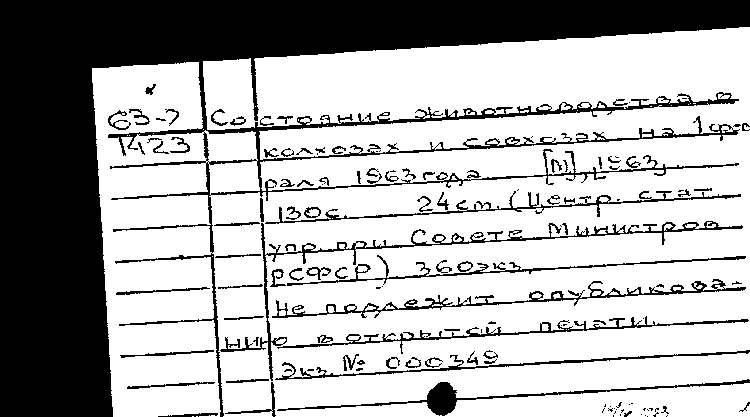 63-7 Состояние животноводства в
1423 колхозах и совхозах на 1 фев
раля 1963 года [М], 1963,
130с. 24см. (Центр. стат.
упр. при Совете Министров
РСФСР) 360экз.
Не подлежит опубликова-
нию в открытой печати.
Экз. № 000349